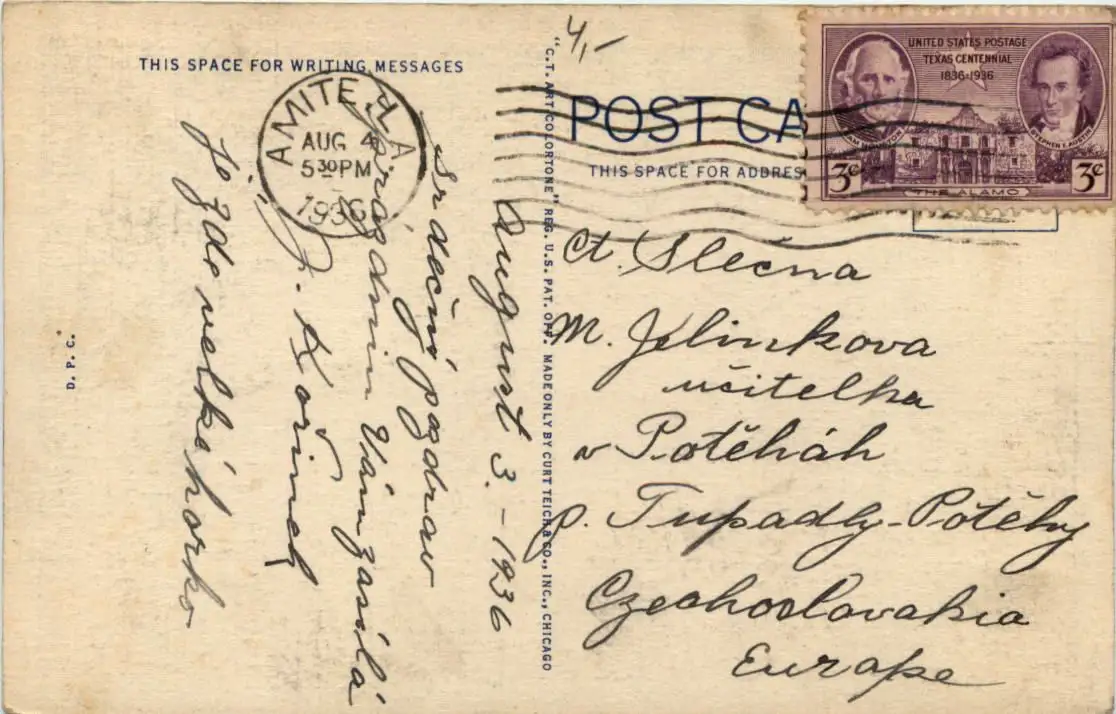 THIS SPACE FOR WRITING MESSAGES
AMITE LA
AUG 4
5 30 PM
1936
August 3. - 1936
Srdečný pozdrav
Vám zasílá
J. Kořinek
Je zde velké horko
D. P. C.
"C. T. ART COLORTONE" REG. U. S. PAT. OFF. MADE ONLY BY CURT TEICH & CO., INC., CHICAGO
4,-
POST CA
THIS SPACE FOR ADDRES
UNITED STATES POSTAGE
TEXAS CENTENNIAL
1836-1936
SAM HOUSTON
STEPHEN F. AUSTIN
3¢
3¢
THE ALAMO
Ct. Slečna
M. Jelinkova
učitelka
v Potěháh
p. Tupadly-Potěhy
Czechoslovakia
Europe